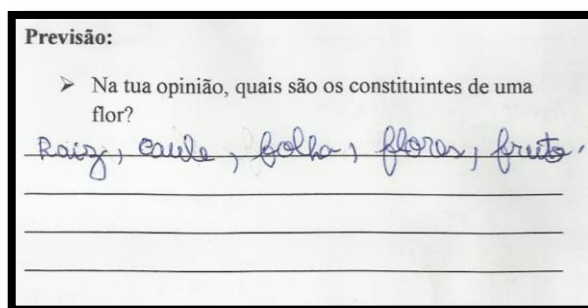 Previsão:
➢ Na tua opinião, quais são os constituintes de uma
flor?
Raiz, caule, folha, flores, fruto.